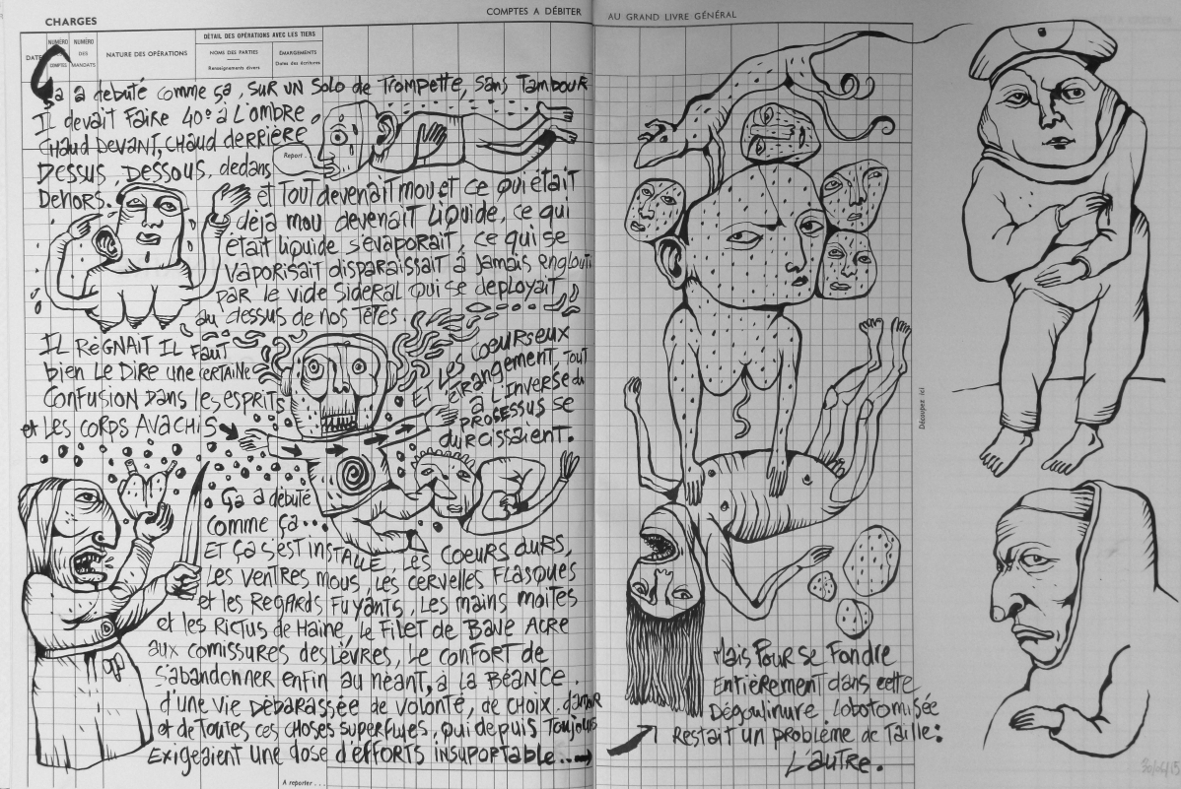 CHARGES
COMPTES A DÉBITER
AU GRAND LIVRE GÉNÉRAL
DÉTAIL DES OPÉRATIONS AVEC LES TIERS
DATE
NUMÉRO
COMPTES
NUMÉRO DES MANDATS
NATURE DES OPÉRATIONS
NOMS DES PARTIES
Renseignements divers
ÉMARGEMENTS
Dates des écritures
ça a débuté comme ça, sur un solo de trompette, sans tambour
Il devait faire 40° à l'ombre.
chaud devant, chaud derrière
Dessus, Dessous, dedans
Report
Dehors. et tout devenait mou et ce qui était
déjà mou devenait liquide, ce qui
était liquide s'évaporait, ce qui se
vaporisait disparaissait à jamais englouti
par le vide sidéral qui se déployait
au dessus de nos têtes.
Il régnait il faut
bien le dire une certaine
confusion dans les esprits
et les corps avachis
Et les coeurs eux
étrangement, tout
à l'inverse du
processus se
durcissaient.
ça a débuté
comme ça...
Et ça s'est installé, les coeurs durs,
les ventres mous, les cervelles flasques
et les regards fuyants, les mains moites
et les rictus de haine, le filet de bave acre
aux comissures des lèvres, le confort de
s'abandonner enfin au néant, à la béance.
d'une vie débarassée de volonté, de choix, d'amour
et de toutes ces choses superflues, qui depuis toujours
Exigeaient une dose d'efforts insuportable...
A reporter...
Découpez ici
Mais pour se fondre
Entièrement dans cette
Dégoulinure lobotomisée
Restait un problème de taille:
L'autre.